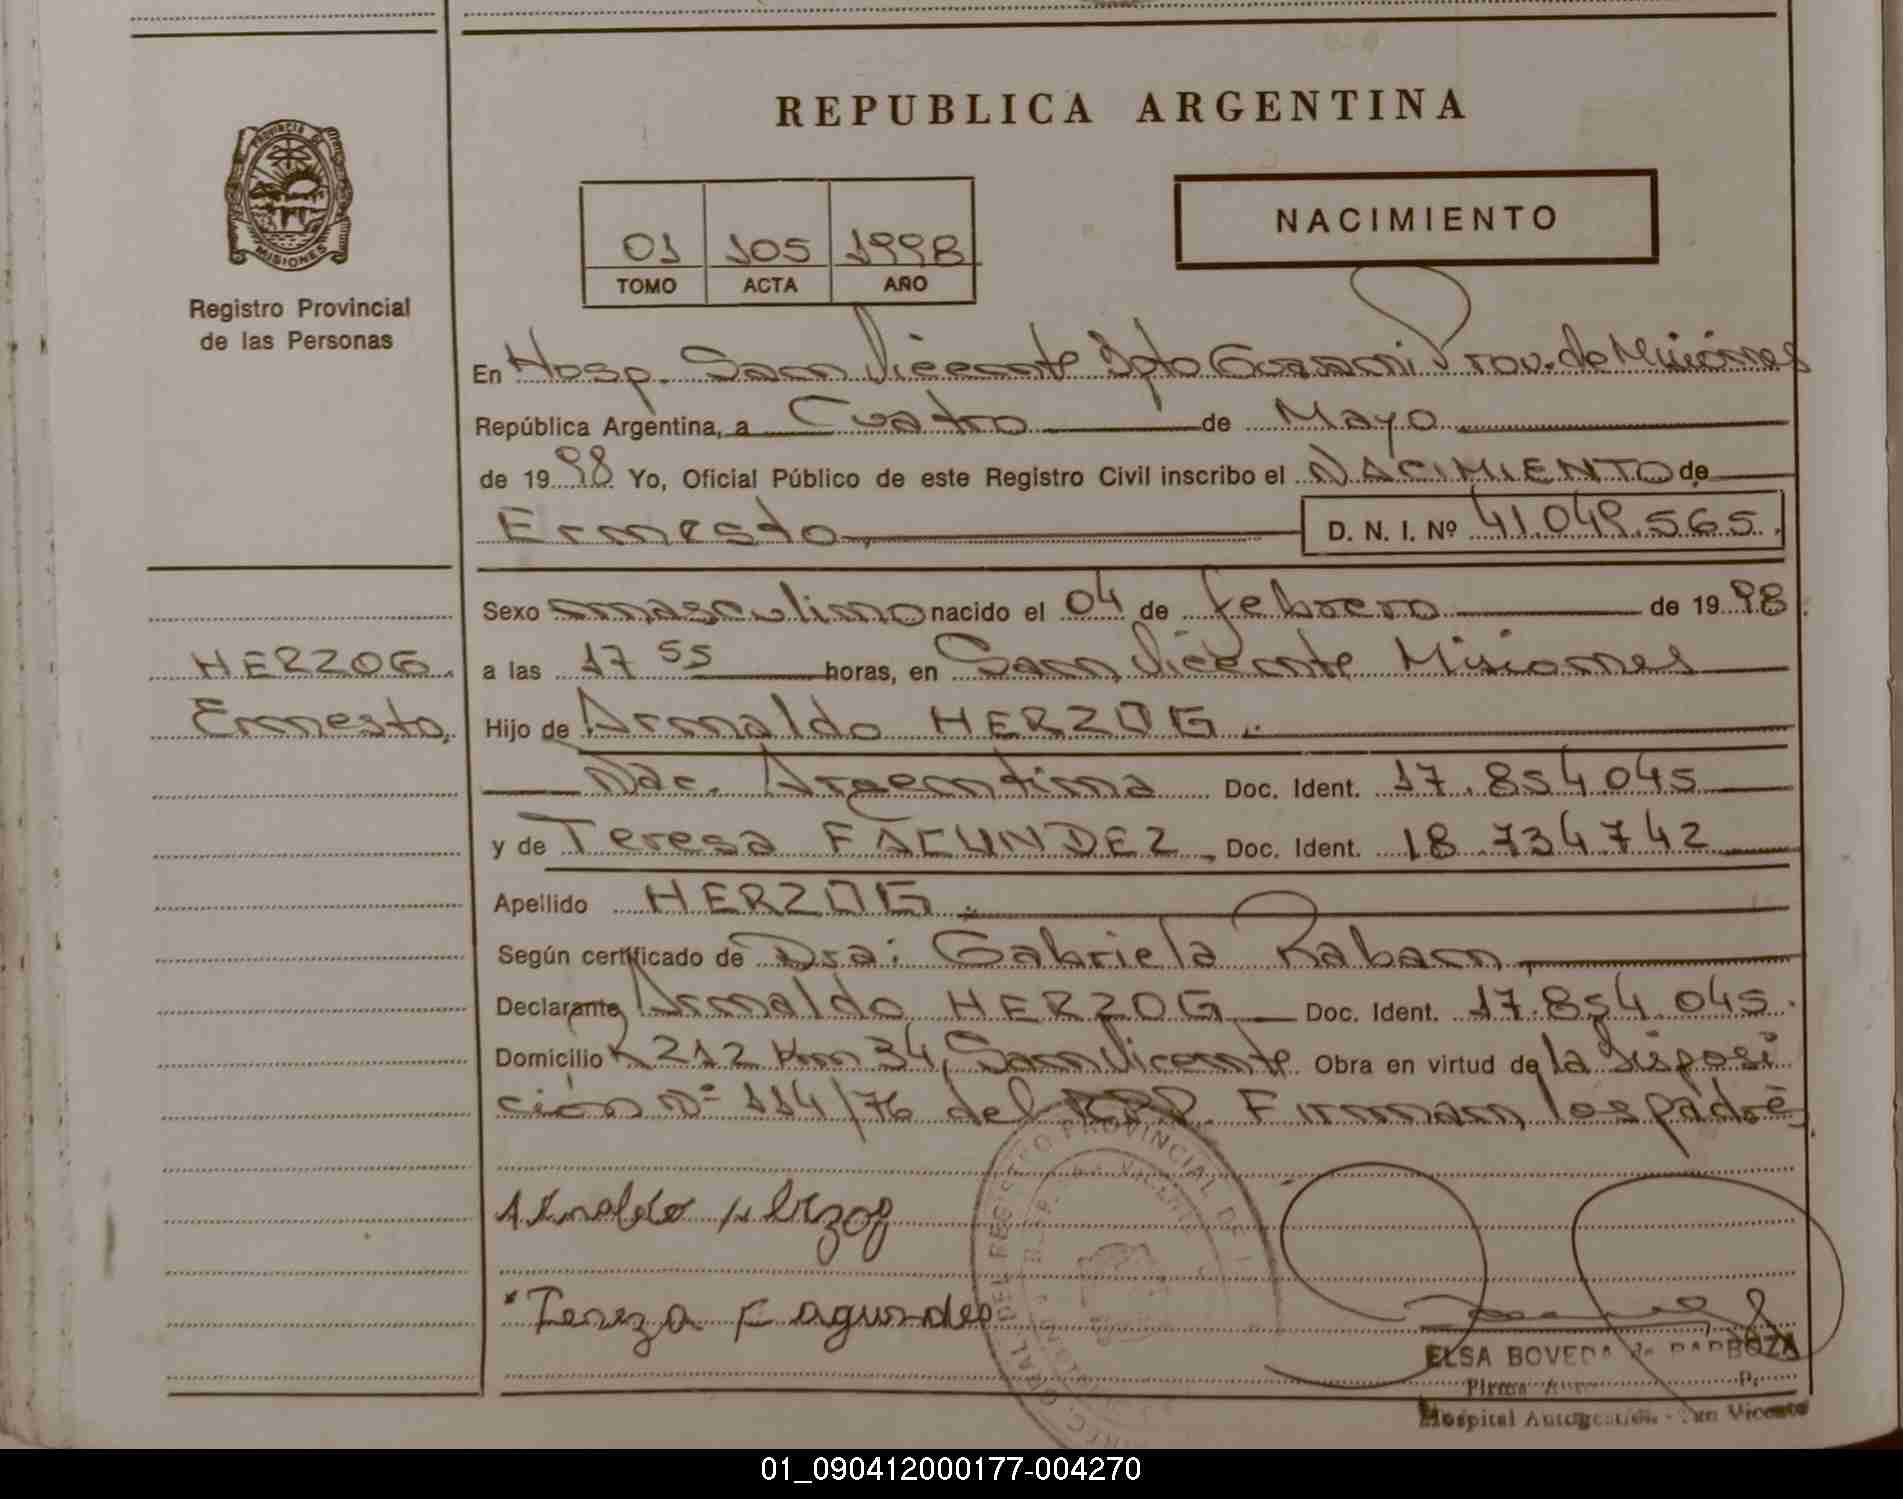 REPUBLICA ARGENTINA
PROVINCIA DE MISIONES
Registro Provincial
de las Personas
01 105 1998
TOMO ACTA AÑO
NACIMIENTO
En Hosp. San Vicente Dpto Guarani Prov. de Misiones
República Argentina, a Cuatro de Mayo
de 19 98 Yo, Oficial Público de este Registro Civil inscribo el NACIMIENTO de
Ernesto D. N. I. Nº 41.049.565.
Sexo masculino nacido el 04 de febrero de 19 98
a las 17 55 horas, en San Vicente Misiones
HERZOG.
Ernesto,
Hijo de Arnaldo HERZOG.
Nac. Argentina Doc. Ident. 17.854045
y de Teresa FACUNDEZ, Doc. Ident. 18 734742
Apellido HERZOG.
Según certificado de Dra: Gabriela Raban,
Declarante Arnaldo HERZOG Doc. Ident. 17.854 045.
Domicilio R 212 Km 34, San Vicente. Obra en virtud de la Disposi
ción Nº 114/76 del RPP. Firman los padres
Arnaldo Herzog
Tereza Fagundes
REGISTRO PROVINCIAL DE
ELSA BOVEDA de BARBOZA
Hospital Autogestión - San Vicente
01_090412000177-004270